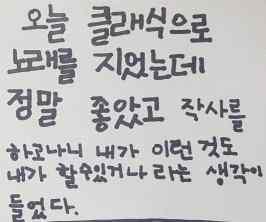 오늘 클래식으로
노래를 지었는데
정말 좋았고 작사를
하고나니 내가 이런 것도
내가 할수있거나 라는 생각이
들었다.